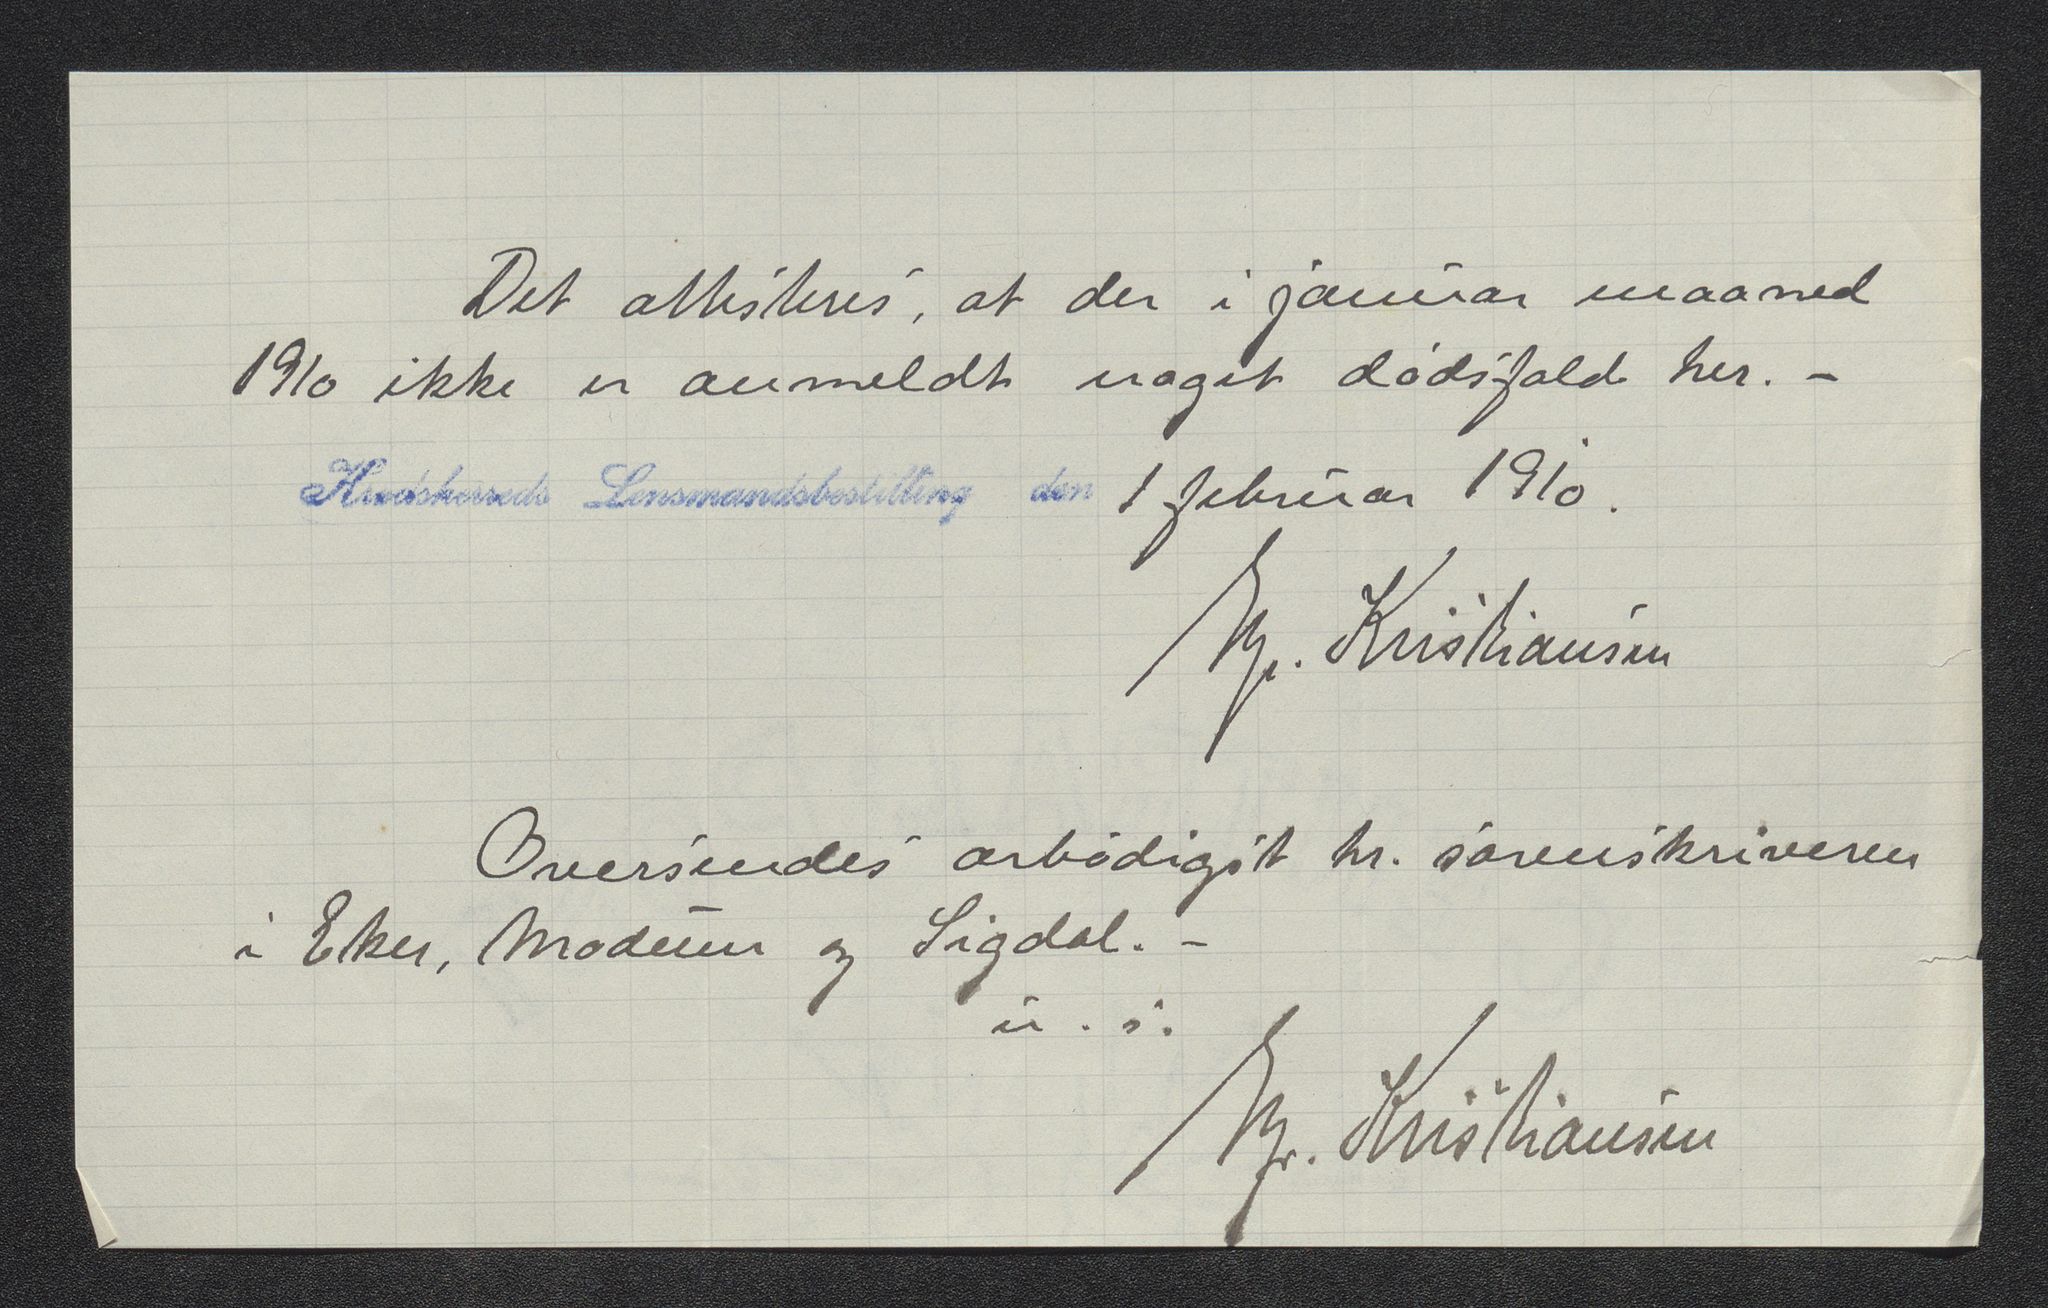 Det attesteres, at der i januar maaned
1910 ikke er anmeldt noget dødsfald her. -
Lensmandsbestilling den 1 februar 1910.
Kristiansen
Oversendes ærbødigst hr. sorenskriveren
i Eker, Modum og Sigdal. -
u. s.
Kristiansen